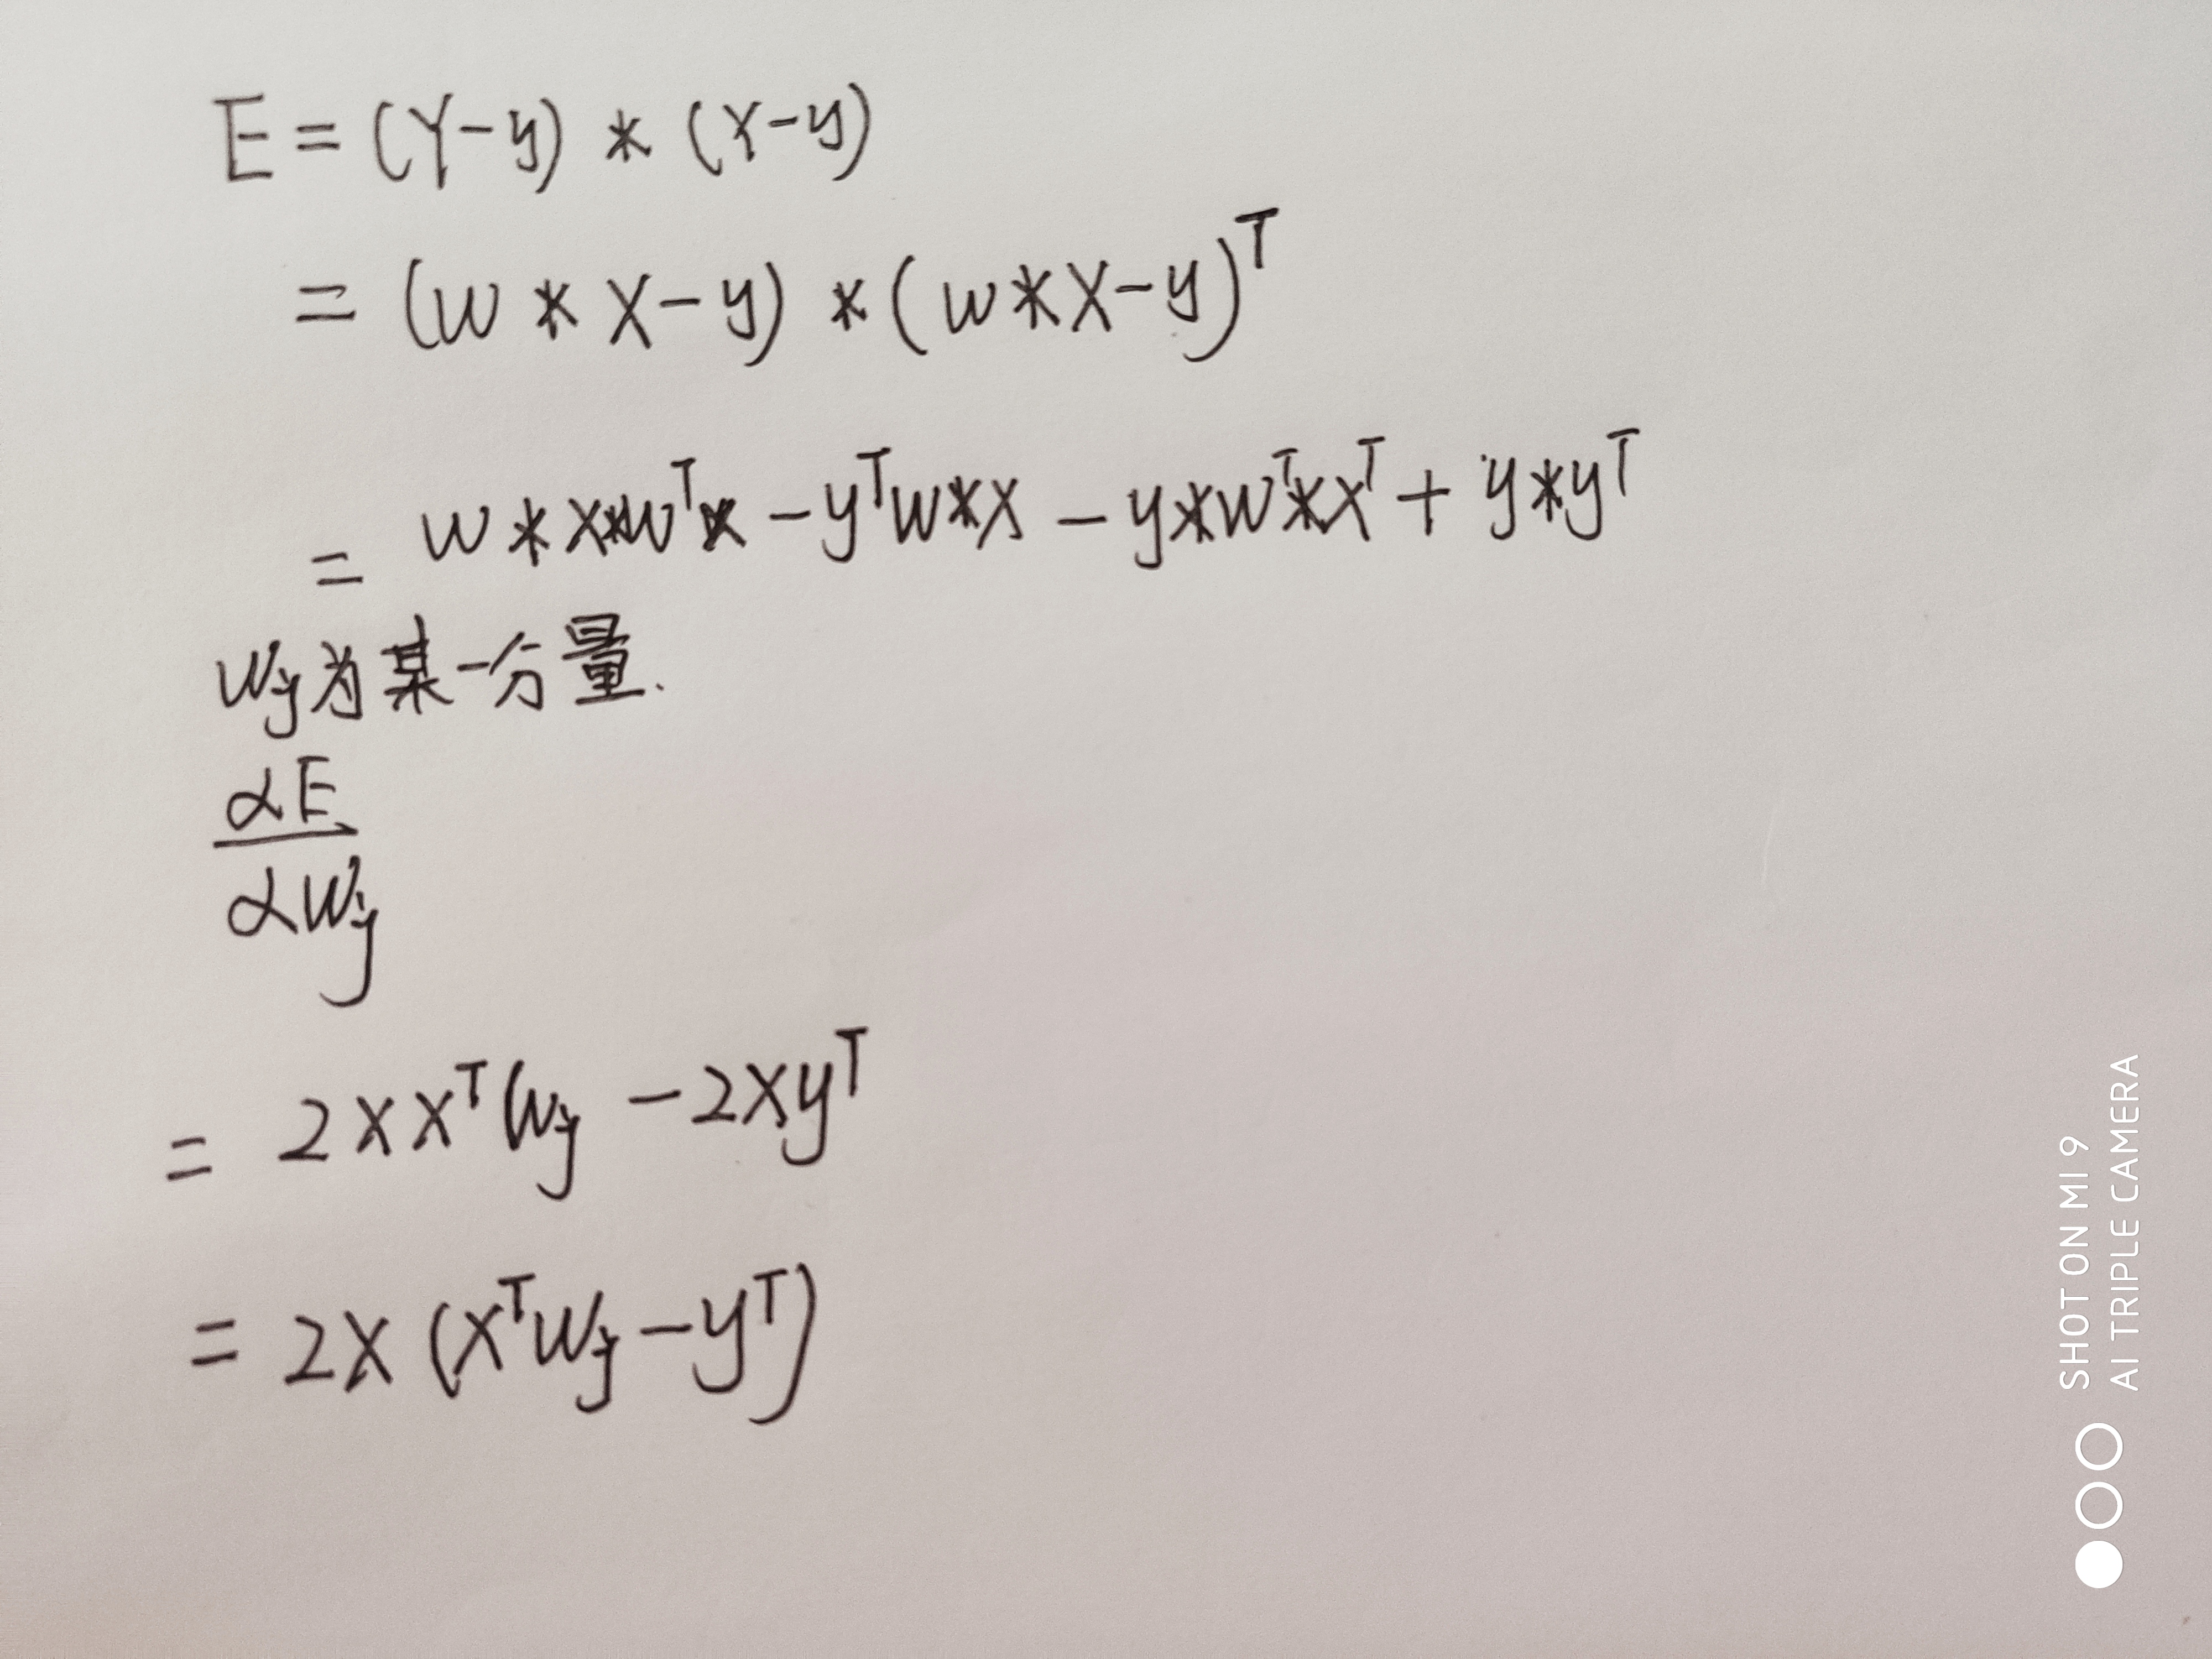 E = (Y-y) * (Y-y)
= (w * X-y) * (w*X-y)^T
= w * X*w^T x - y^T w*x - y*w^T*x^T + y*y^T
wj为某一分量.
αE
αwj
= 2XX^T wj - 2Xy^T
= 2X (X^T wj - y^T)
SHOT ON MI 9
AI TRIPLE CAMERA